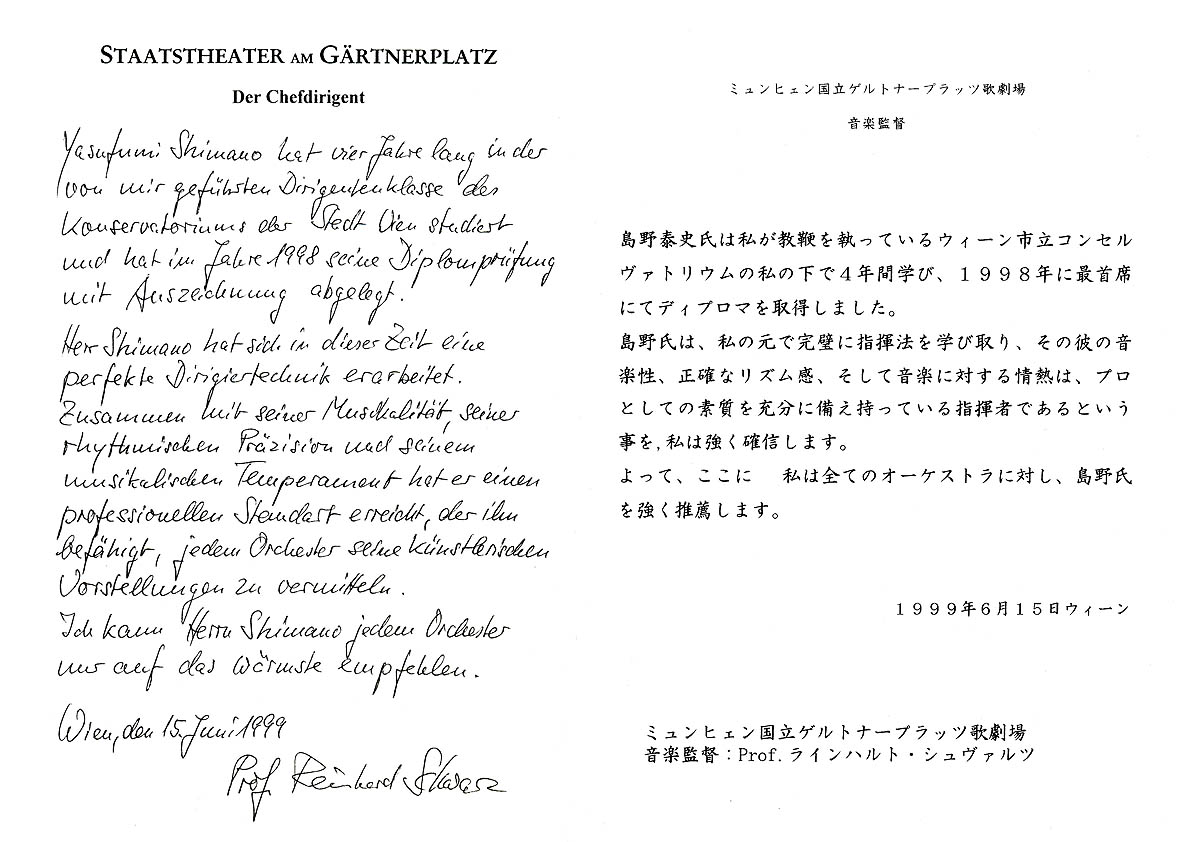 STAATSTHEATER AM GÄRTNERPLATZ
Der Chefdirigent
Yasufumi Shimano hat vier Jahre lang in der
von mir geführten Dirigentenklasse des
Konservatoriums der Stadt Wien studiert
und hat im Jahre 1998 seine Diplomprüfung
mit Auszeichnung abgelegt.
Herr Shimano hat sich in dieser Zeit eine
perfekte Dirigiertechnik erarbeitet.
Zusammen mit seiner Musikalität, seiner
rhythmischen Präzision und seinem
musikalischen Temperament hat er einen
professionellen Standart erreicht, der ihn
befähigt, jedem Orchester seine künstlerischen
Vorstellungen zu vermitteln.
Ich kann Herrn Shimano jedem Orchester
nur auf das wärmste empfehlen.
Wien, den 15. Juni 1999
Prof. Reinhard Schwarz
ミュンヒェン国立ゲルトナープラッツ歌劇場
音楽監督
島野泰史氏は私が教鞭を執っているウィーン市立コンセル
ヴァトリウムの私の下で４年間学び、１９９８年に最首席
にてディプロマを取得しました。
島野氏は、私の元で完璧に指揮法を学び取り、その彼の音
楽性、正確なリズム感、そして音楽に対する情熱は、プロ
としての素質を充分に備え持っている指揮者であるという
事を,私は強く確信します。
よって、ここに　私は全てのオーケストラに対し、島野氏
を強く推薦します。
１９９９年６月１５日ウィーン
ミュンヒェン国立ゲルトナープラッツ歌劇場
音楽監督：Prof.ラインハルト・シュヴァルツ